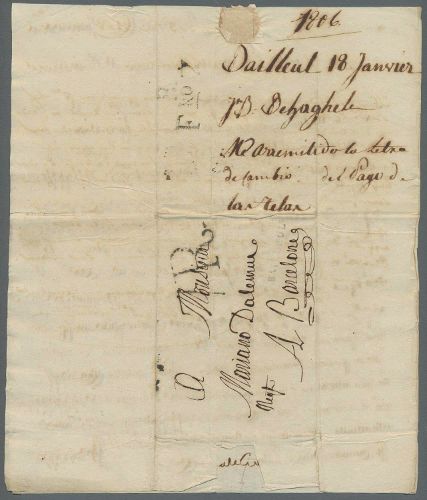 1806.
Dailleul 18 Janvier
J. B. Dehaghele
Me a remitido la letra
de cambio del Pago de
las telas
A Monsieur
Mariano Dalemau
Negt
A Barcelone